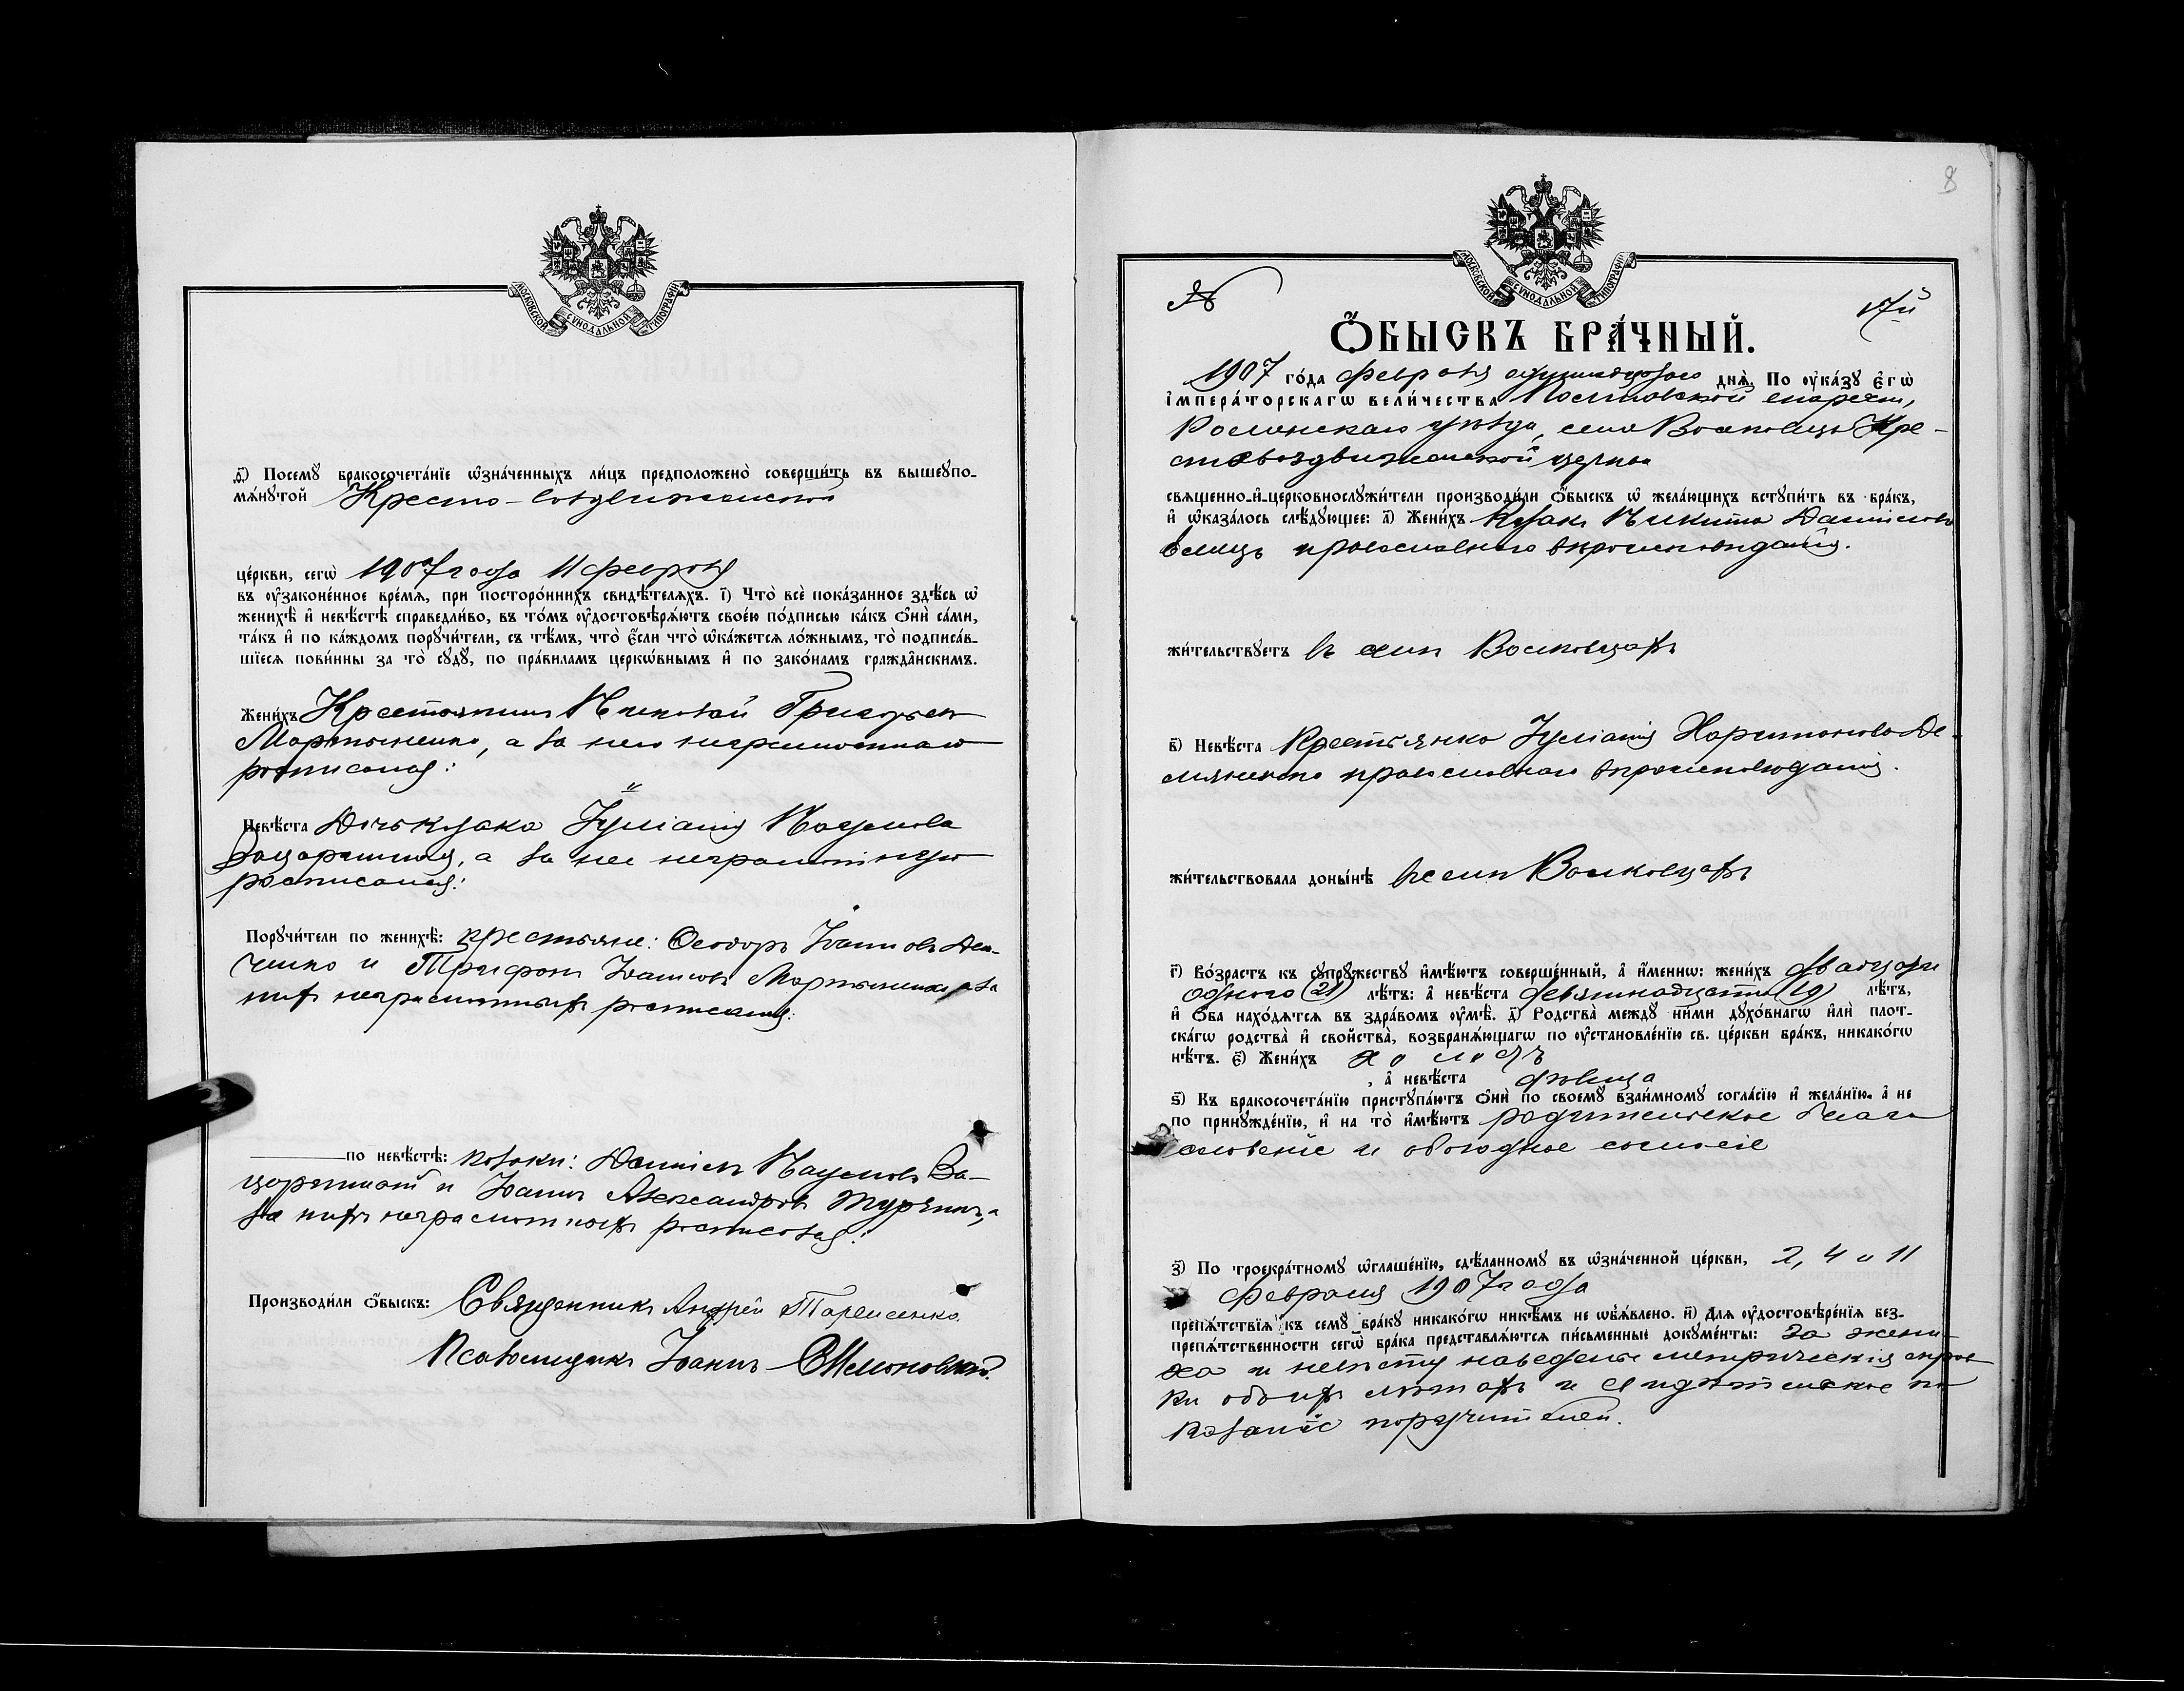 МОСКОВСКОЙ СѴНОДАЛЬНОЙ ТИПОГРАФІИ
д҃) Посемꙋ̀ бракосочета́нїе ѡ҆зна́ченныхъ ли́цъ предположено̀ соверши́ть въ вышеꙋпо-
мѧ́нꙋтой Кресто-воздвиженской
це́ркви, сегѡ̀ 1907 года 11 февраля
въ ᲂу҆зако́ненное вре́мѧ, при посторо́ннихъ свидѣ́телѧхъ. і҃) Что̀ всѐ пока́занное здѣ́сь ѡ҆
женихѣ̀ и҆ невѣ́стѣ справедли́во, въ то́мъ ᲂу҆достовѣрѧ́ютъ свое́ю по́дписью ка́къ ѻ҆нѝ са́ми,
та́къ и҆ по ка́ждомъ порꙋчи́тели, съ тѣ́мъ, что̀ є҆́сли что̀ ѡ҆ка́жетсѧ ло́жнымъ, то̀ подписа́в-
шїесѧ пови́нны за то̀ сꙋдꙋ̀, по пра́виламъ церко́внымъ и҆ по зако́намъ гражда́нскимъ.
Жени́хъ Крестьянинъ Николай Григорьевъ
Мартыненко, а за него неграмотнаго
росписался:
Невѣ́ста Дочь козака Іуліанія Наумова
Зацаринная, а за нее неграмотную
росписался:
Порꙋчи́тели по женихѣ̀: крестьяне: Ѳеодоръ Іоанновъ Дем-
ченко и Трифонъ Іоанновъ Мартыненко, а за
нихъ неграмотныхъ росписался:
по невѣ́стѣ: козаки: Даніилъ Наумовъ За-
царинный и Іоаннъ Александровъ Турчинъ, а
за нихъ неграмотныхъ росписался:
Производи́ли ѻ҆́быскъ: Священникъ Андрей
Псаломщикъ Іоаннъ
8
МОСКОВСКОЙ СѴНОДАЛЬНОЙ ТИПОГРАФІИ
№ 17й
Ѻ҆́БЫСКЪ БРА́ЧНЫЙ.
1907 го́да февраля одинадцатого днѧ̀. По ᲂу҆ка́зꙋ Є҆гѡ̀
І҆мпера́торскагѡ Вели́чества Полтавской епархіи,
Роменскаго уѣзда, села Волковецъ Кре-
стовоздвиженской церкви
свѧщенно-и҆-церковнослꙋжи́тели производи́ли ѻ҆́быскъ ѡ҆ жела́ющихъ встꙋпи́ть въ бра́къ,
и҆ ѡ҆каза́лось слѣ́дꙋющее: а҃) Жени́хъ Козакъ Никита Даниловъ
православнаго вѣроисповѣданія.
жи́тельствꙋетъ въ селѣ Волковцахъ
в҃) Невѣ́ста Крестьянка Іуліанія Харитонова Де-
мяненко православнаго вѣроисповѣданія.
жи́тельствовала доны́нѣ въ селѣ Волковцахъ
г҃) Во́зрастъ къ сꙋпрꙋ́жествꙋ и҆мѣ́ютъ соверше́нный, а҆ и҆́меннѡ: жени́хъ двадцати
одного (21) лѣ́тъ: а҆ невѣ́ста девятнадцати (19) лѣ́тъ,
и҆ ѻ҆́ба нахо́дѧтсѧ въ здра́вомъ ᲂу҆мѣ̀. д҃) Родства̀ междꙋ̀ ни́ми дꙋхо́внагѡ и҆лѝ плот-
ска́гѡ родства̀ и҆ свойства̀, возбранѧ́ющагѡ по ᲂу҆становле́нїю св. це́ркви бра́къ, никако́гѡ
нѣ́тъ. є҃) Жени́хъ холостъ
, а҆ невѣ́ста дѣвица
ѕ҃) Къ бракосочета́нїю пристꙋпа́ютъ ѻ҆нѝ по своемꙋ̀ взаи́мномꙋ согла́сїю и҆ жела́нїю, а҆ не
по принꙋжде́нїю, и҆ на то̀ и҆мѣ́ютъ родительское благо
словеніе и обоюдное согласіе
з҃) По троекра́тномꙋ ѡ҆глаше́нїю, сдѣ́ланномꙋ въ ѡ҆зна́ченной це́ркви, 2, 4 и 11
февраля 1907 года
препѧ́тствїѧ къ семꙋ̀ бра́кꙋ никако́гѡ никѣ́мъ не ѡ҆б̾ѧ́влено. и҃) Длѧ ᲂу҆достовѣре́нїѧ без-
препѧ́тственности сегѡ̀ бра́ка представлѧ́ютсѧ пи́сьменные докꙋме́нты: за жени-
ха и невѣсту наведены метрическія справ
ки объ ихъ лѣтахъ и свидѣтельское по
казаніе поручителей.